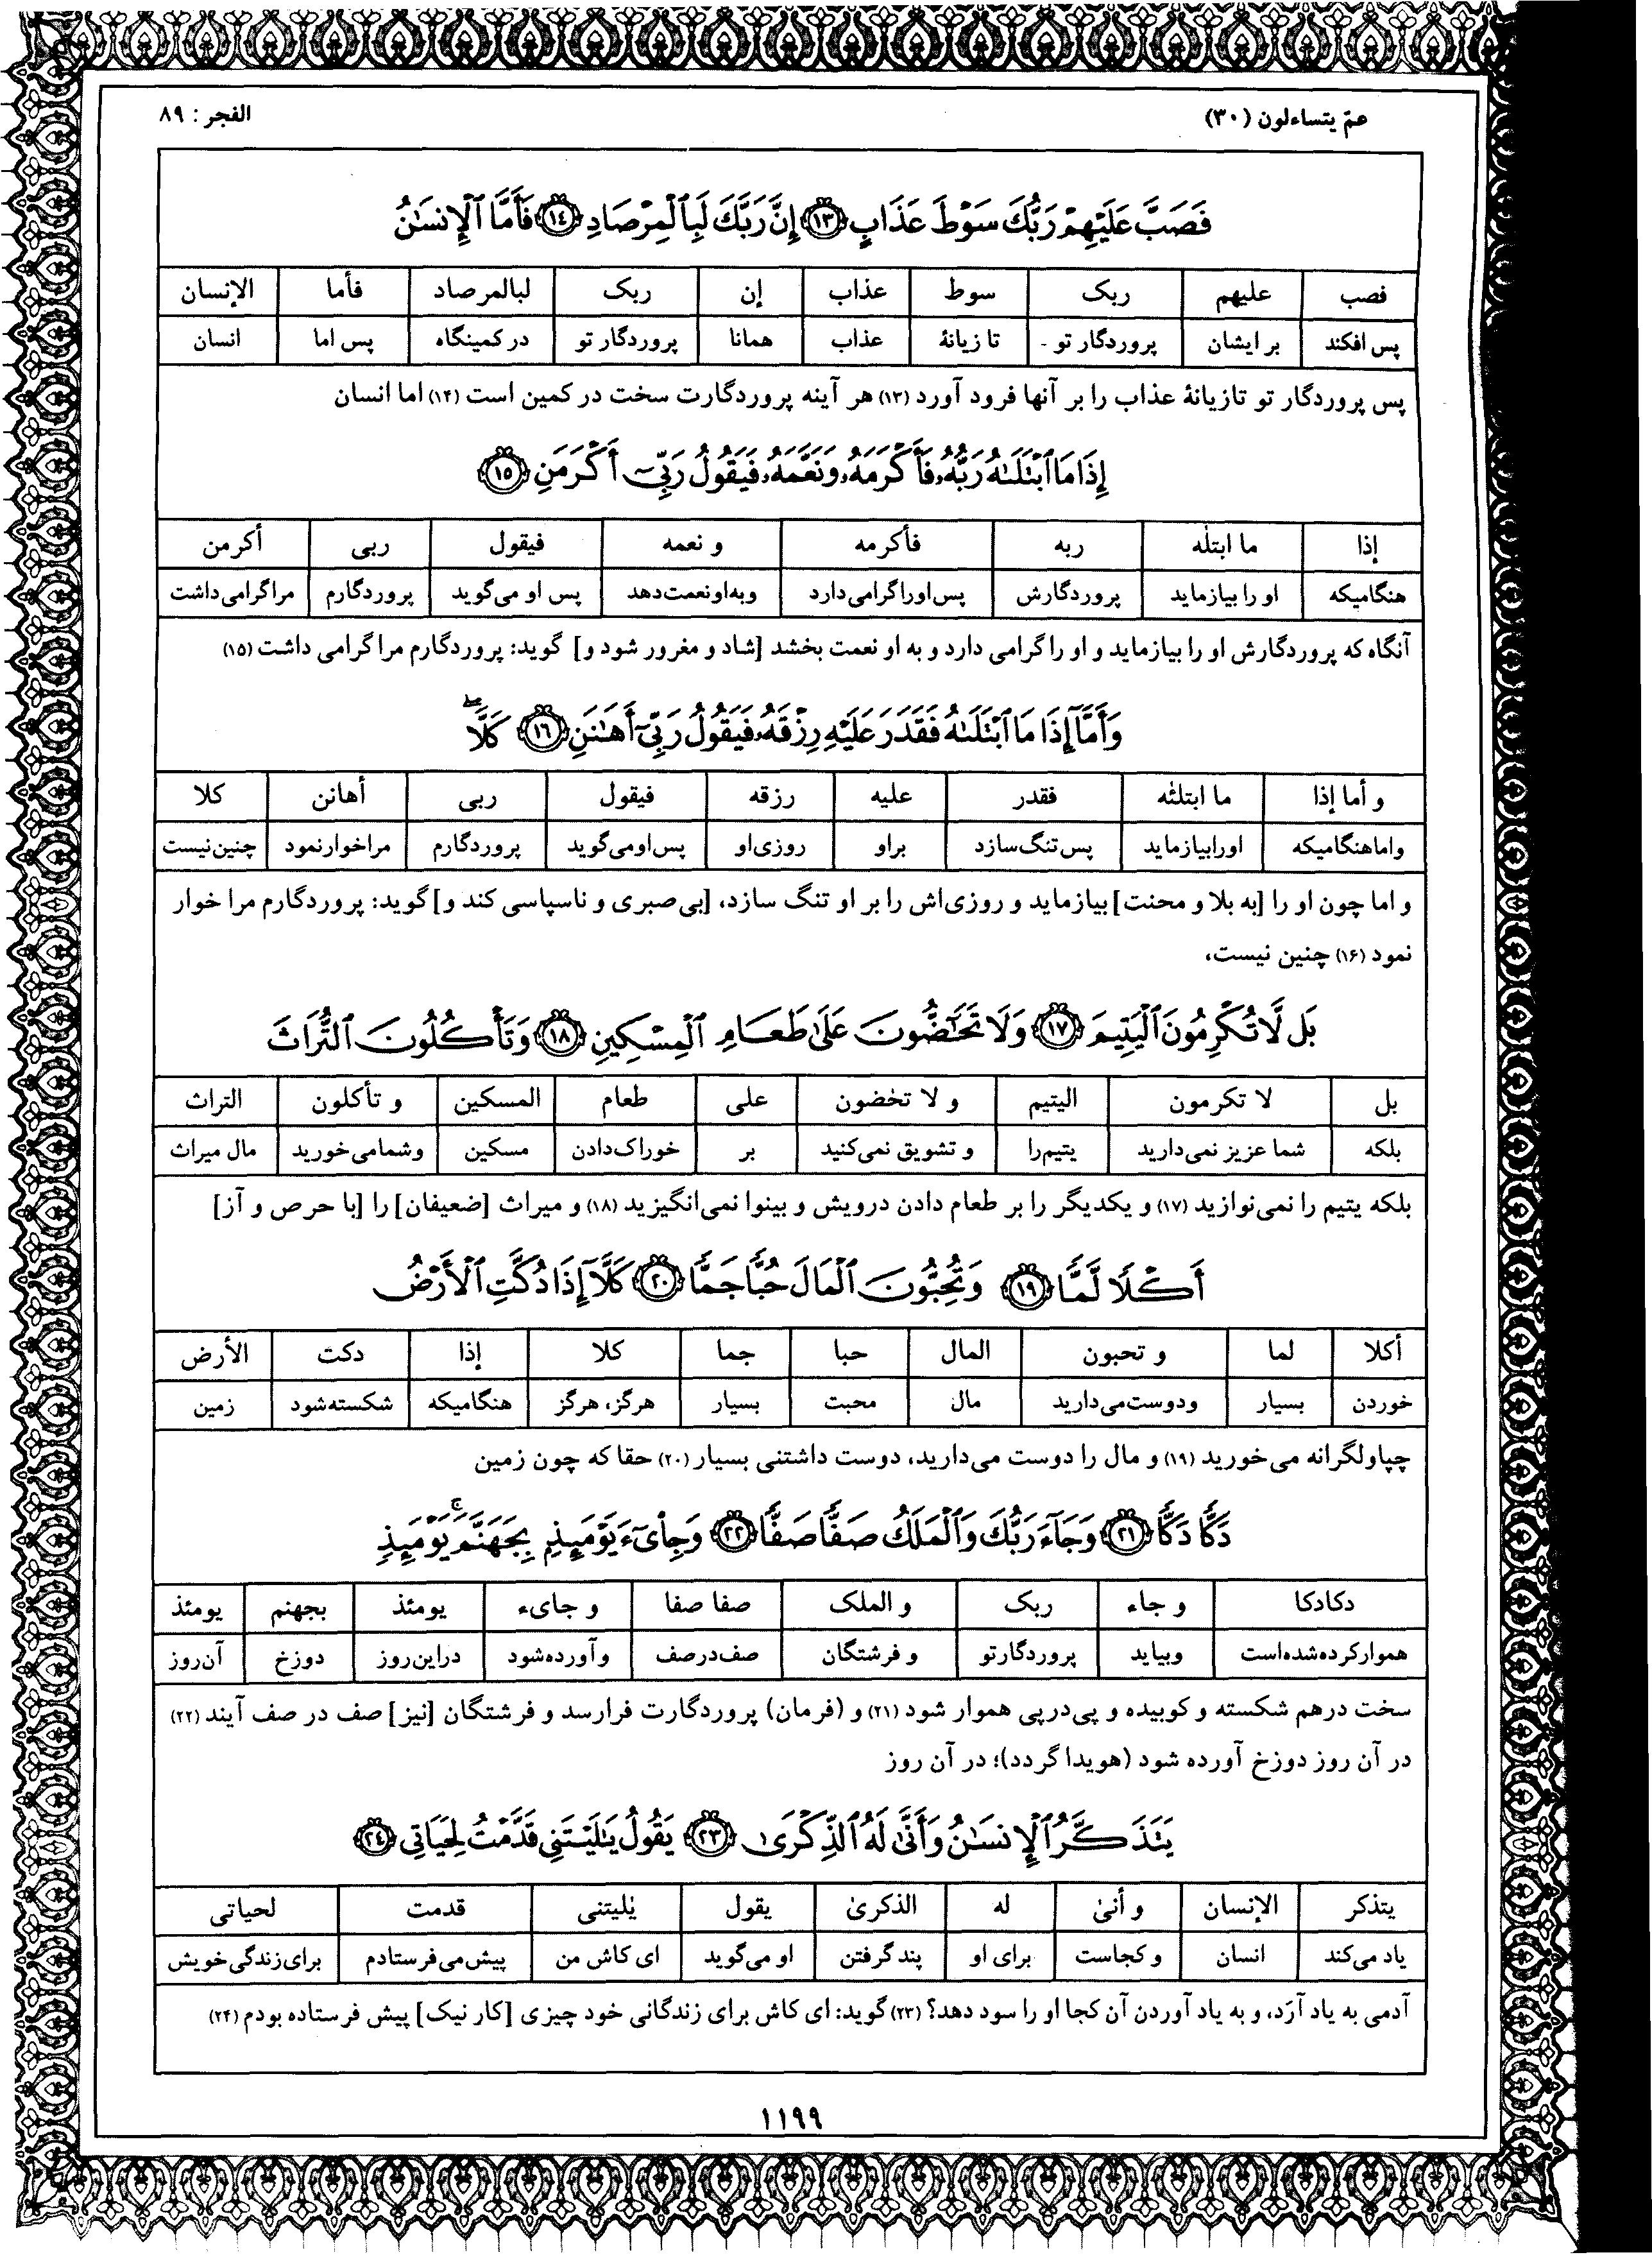 عمّ یتساءلون (۳۰)
الفجر : ۸۹
فَصَبَّ عَلَيْهِمْ رَبُّكَ سَوْطَ عَذَابٍ ١٣ إِنَّ رَبَّكَ لَبِٱلْمِرْصَادِ ١٤ فَأَمَّا ٱلْإِنسَٰنُ
فصب علیهم ربک سوط عذاب إن ربک لبالمرصاد فأما الإنسان
پس افکند بر ایشان پروردگار تو تا زیانهٔ عذاب همانا پروردگار تو در کمینگاه پس اما انسان
پس پروردگار تو تازیانهٔ عذاب را بر آنها فرود آورد (۱۳) هر آینه پروردگارت سخت در کمین است (۱۴) اما انسان
إِذَا مَا ٱبْتَلَىٰهُ رَبُّهُۥ فَأَكْرَمَهُۥ وَنَعَّمَهُۥ فَيَقُولُ رَبِّىٓ أَكْرَمَنِ ١٥
إذا ما ابتلٰه ربه فأکرمه و نعمه فیقول ربی أکرمن
هنگامیکه او را بیازماید پروردگارش پس اورا گرامی دارد وبه او نعمت دهد پس او می‌گوید پروردگارم مرا گرامی داشت
آنگاه که پروردگارش او را بیازماید و او را گرامی دارد و به او نعمت بخشد [شاد و مغرور شود و] گوید: پروردگارم مرا گرامی داشت (۱۵)
وَأَمَّآ إِذَا مَا ٱبْتَلَىٰهُ فَقَدَرَ عَلَيْهِ رِزْقَهُۥ فَيَقُولُ رَبِّىٓ أَهَٰنَنِ ١٦ كَلَّا ۖ
و أما إذا ما ابتلئه فقدر علیه رزقه فیقول ربی أهانن کلا
واما هنگامیکه اورا بیازماید پس تنگ سازد براو روزی او پس او می‌گوید پروردگارم مرا خوار نمود چنین نیست
و اما چون او را [به بلا و محنت] بیازماید و روزی‌اش را بر او تنگ سازد، [بی صبری و ناسپاسی کند و] گوید: پروردگارم مرا خوار
نمود (۱۶) چنین نیست،
بَل لَّا تُكْرِمُونَ ٱلْيَتِيمَ ١٧ وَلَا تَحَٰٓضُّونَ عَلَىٰ طَعَامِ ٱلْمِسْكِينِ ١٨ وَتَأْكُلُونَ ٱلتُّرَاثَ
بل لا تکرمون الیتیم و لا تحٰضون علی طعام المسکین و تأکلون التراث
بلکه شما عزیز نمی‌دارید یتیم را و تشویق نمی‌کنید بر خوراک دادن مسکین وشما می‌خورید مال میراث
بلکه یتیم را نمی‌نوازید (۱۷) و یکدیگر را بر طعام دادن درویش و بینوا نمی‌انگیزید (۱۸) و میراث [ضعیفان] را [با حرص و آز]
أَكْلًا لَّمًّا ١٩ وَتُحِبُّونَ ٱلْمَالَ حُبًّا جَمًّا ٢٠ كَلَّآ إِذَا دُكَّتِ ٱلْأَرْضُ
أکلا لما و تحبون المال حبا جما کلا إذا دکت الأرض
خوردن بسیار ودوست می‌دارید مال محبت بسیار هرگز، هرگز هنگامیکه شکسته شود زمین
چپاولگرانه می‌خورید (۱۹) و مال را دوست می‌دارید، دوست داشتنی بسیار (۲۰) حقا که چون زمین
دَكًّا دَكًّا ٢١ وَجَآءَ رَبُّكَ وَٱلْمَلَكُ صَفًّا صَفًّا ٢٢ وَجِا۟ىٓءَ يَوْمَئِذٍۭ بِجَهَنَّمَ ۚ يَوْمَئِذٍ
دکادکا و جاء ربک و الملک صفا صفا و جایء یومئذ بجهنم یومئذ
هموار کرده شده است وبیاید پروردگارتو و فرشتگان صف در صف وآورده شود دراین روز دوزخ آن روز
سخت درهم شکسته و کوبیده و پی‌درپی هموار شود (۲۱) و (فرمان) پروردگارت فرارسد و فرشتگان [نیز] صف در صف آیند (۲۲)
در آن روز دوزخ آورده شود (هویدا گردد)؛ در آن روز
يَتَذَكَّرُ ٱلْإِنسَٰنُ وَأَنَّىٰ لَهُ ٱلذِّكْرَىٰ ٢٣ يَقُولُ يَٰلَيْتَنِى قَدَّمْتُ لِحَيَاتِى ٢٤
یتذکر الإنسان و أنیٰ له الذکریٰ یقول یٰلیتنی قدمت لحیاتی
یاد می‌کند انسان و کجاست برای او پند گرفتن او می‌گوید ای کاش من پیش می‌فرستادم برای زندگی خویش
آدمی به یاد آرَد، و به یاد آوردن آن کجا او را سود دهد؟ (۲۳) گوید: ای کاش برای زندگانی خود چیزی [کار نیک] پیش فرستاده بودم (۲۴)
۱۱۹۹